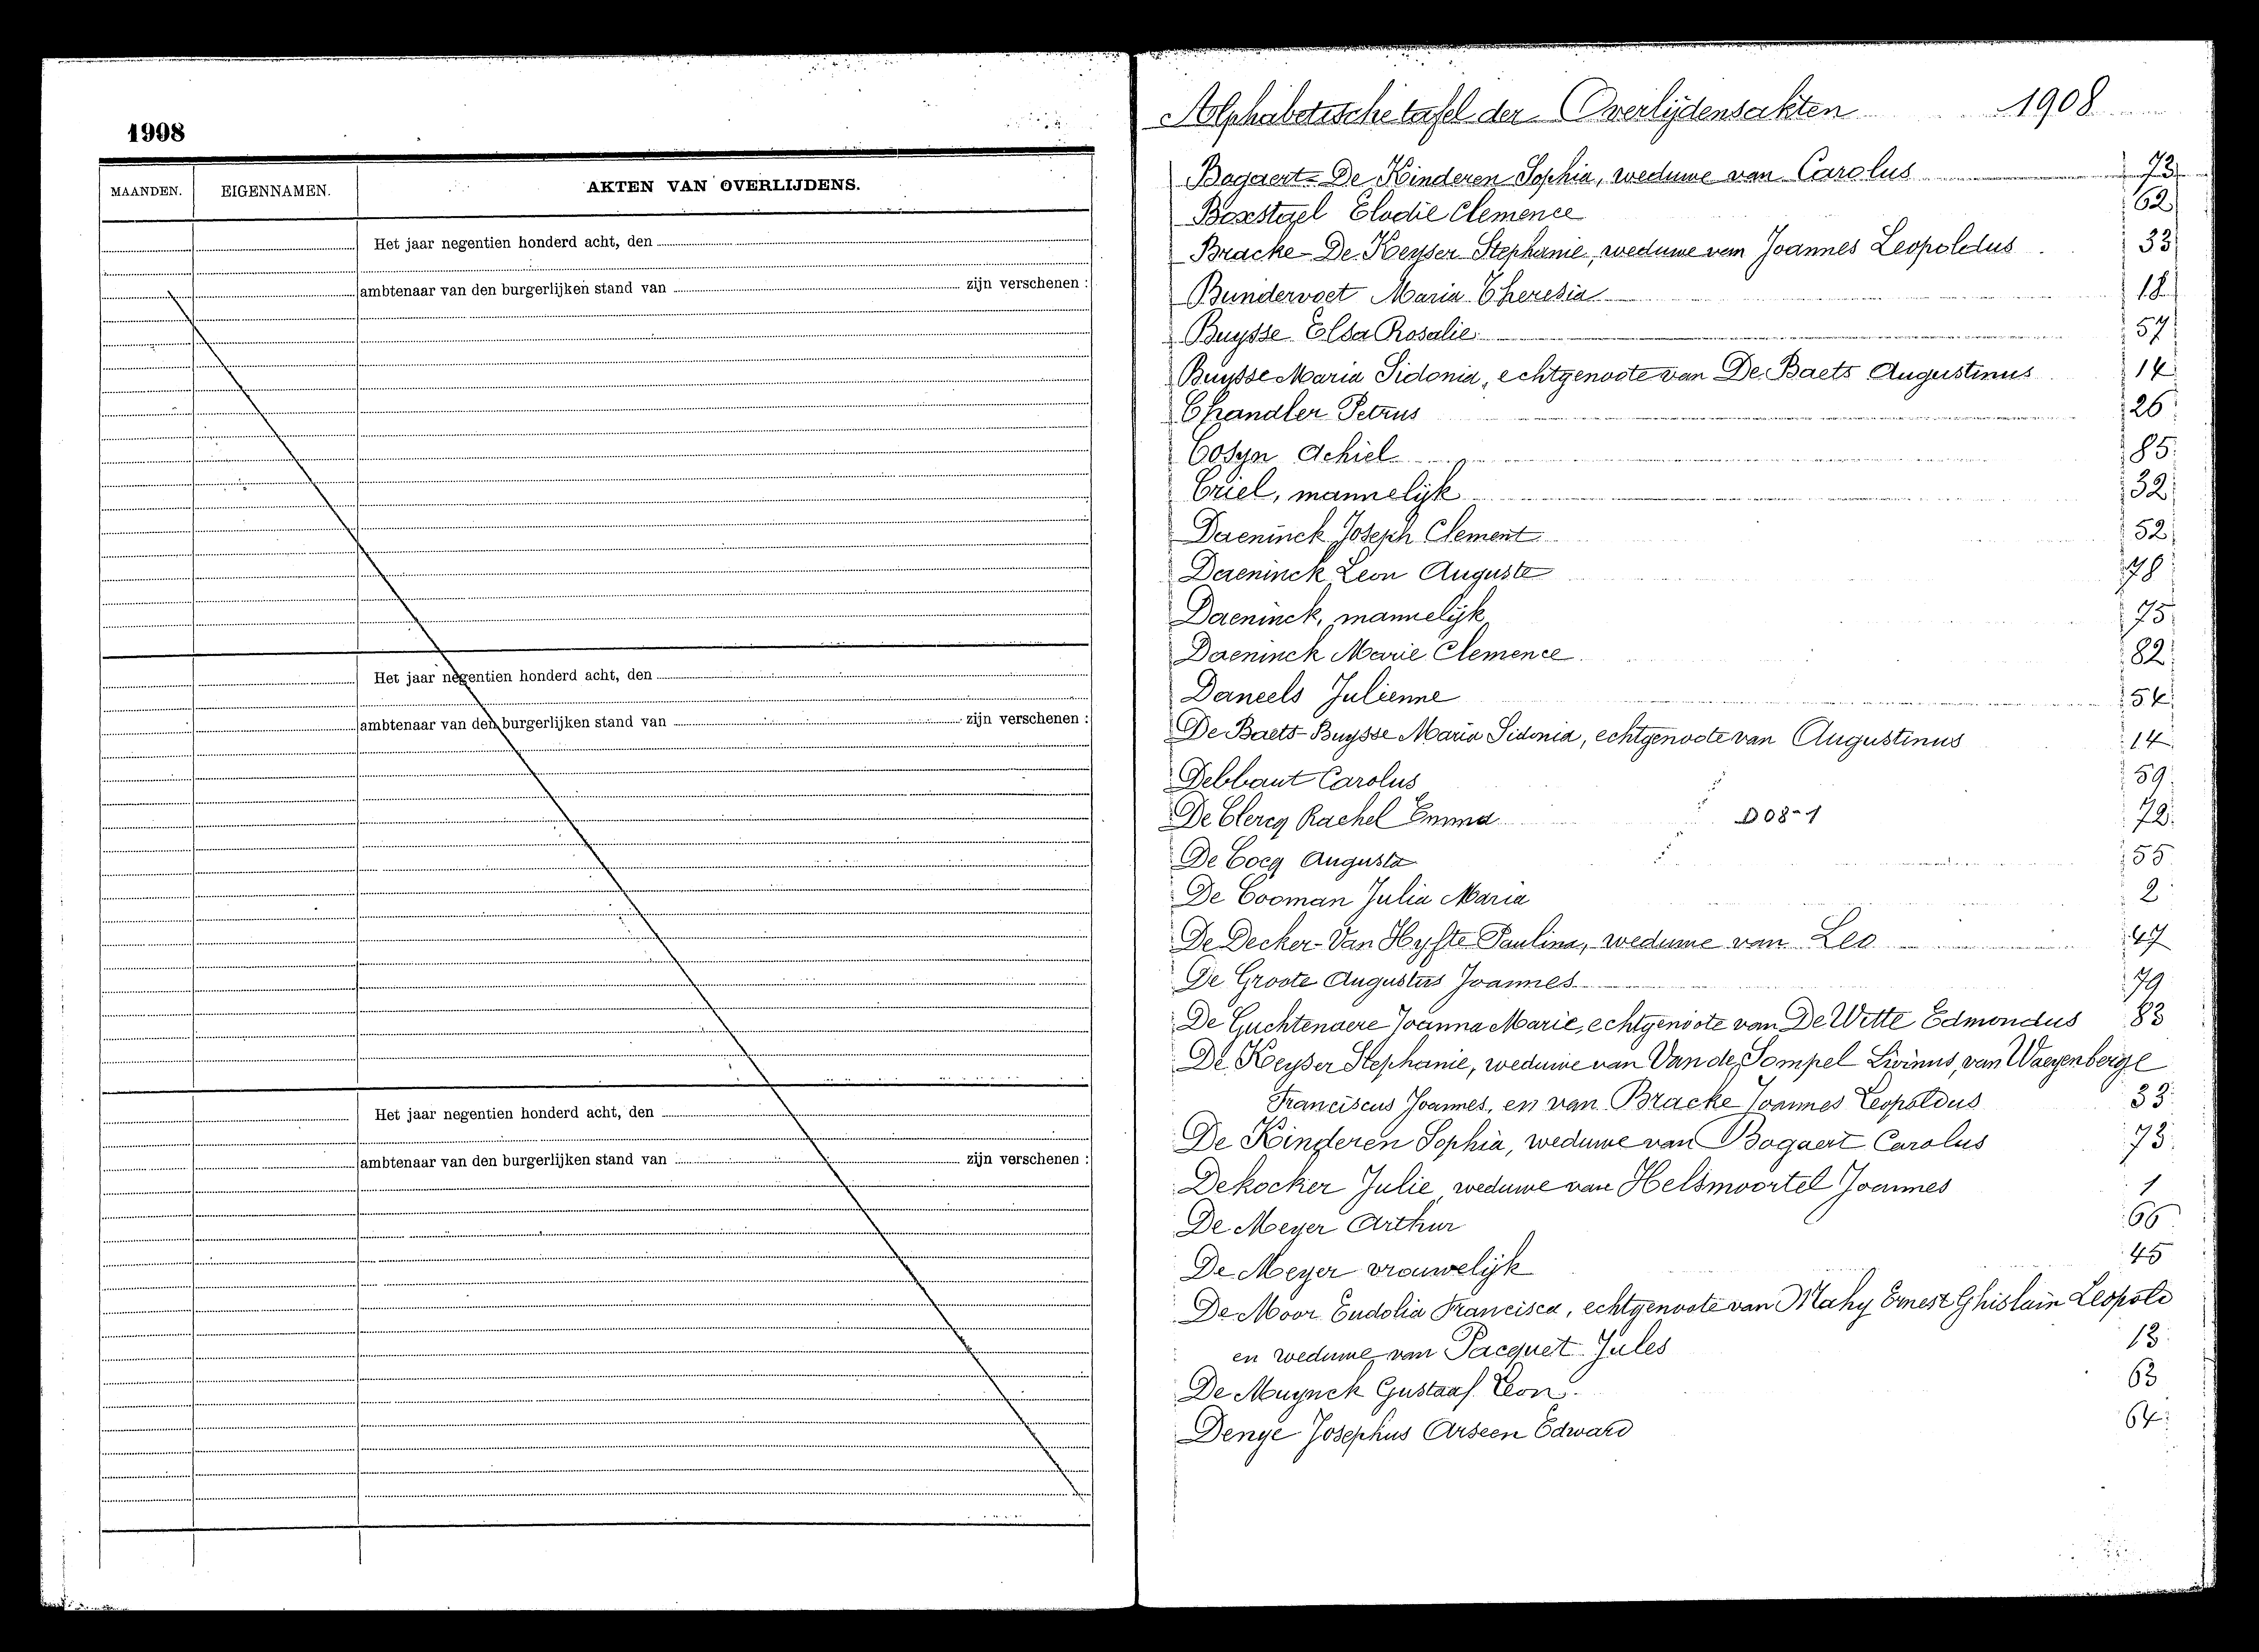 1908
MAANDEN. EIGENNAMEN. AKTEN VAN OVERLIJDENS.
Het jaar negentien honderd acht, den
ambtenaar van den burgerlijken stand van zijn verschenen :
Het jaar negentien honderd acht, den
ambtenaar van den burgerlijken stand van zijn verschenen :
Het jaar negentien honderd acht, den
ambtenaar van den burgerlijken stand van zijn verschenen :
Alphabetische tafel der Overlijdensakten 1908
Bogaert-De Kinderen Sophia, weduwe van Carolus 73
Boxstael Elodie Clemence 62
Bracke-De Keyser Stephanie, weduwe van Joannes Leopoldus 33
Bundervoet Maria Theresia 18
Buysse Elsa Rosalie 57
Buysse Maria Sidonia, echtgenoote van De Baets Augustinus 14
Chandler Petrus 26
Cosyn Achiel 85
Criel, mannelijk 32
Daeninck Joseph Clement 52
Daeninck Leon Auguste 78
Daeninck, mannelijk 75
Daeninck Marie Clemence 82
Daneels Julienne 54
De Baets-Buysse Maria Sidonia, echtgenoote van Augustinus 14
Debbaut Carolus 59
De Clercq Rachel Emma D08-1 72
De Cocq Augusta 55
De Cooman Julia Maria 2
De Decker-Van Hyfte Paulina, weduwe van Leo 47
De Groote Augustus Joannes 79
De Guchtenaere Joanna Marie, echtgenoote van De Witte Edmondus 83
De Keyser Stephanie, weduwe van Van de Sompel Livinus, van Waeyenberge
Franciscus Joannes, en van Bracke Joannes Leopoldus 33
De Kinderen Sophia, weduwe van Bogaert Carolus 73
Dekocker Julie weduwe van Helsmoortel Joannes 1
De Meyer Arthur 66
De Meyer vrouwelijk 45
De Moor Eudolia Francisca, echtgenoote van Mahy Ernest Ghislain Leopold
en weduwe van Pacquet Jules 13
De Muynck Gustaaf Leon 63
Denye Josephus Arseen Edward 64